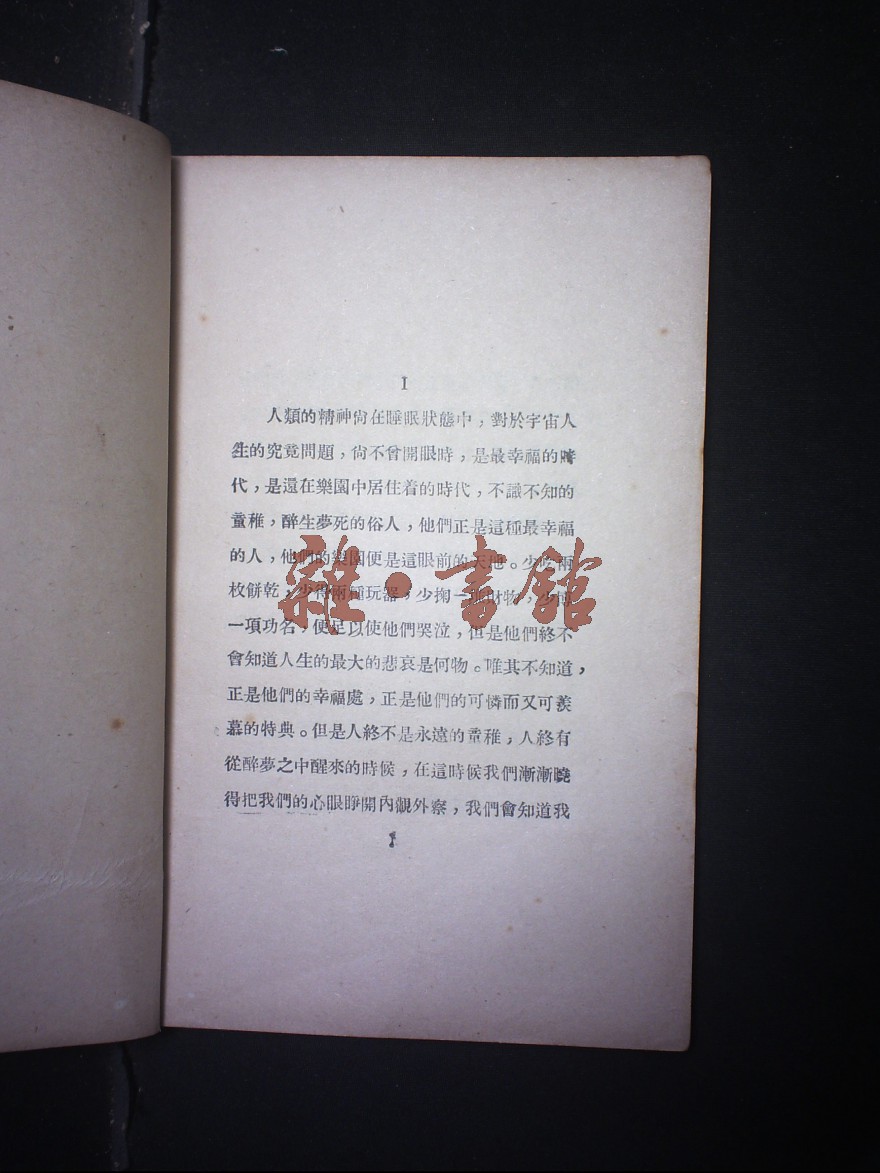 I
人類的精神尙在睡眠狀態中，對於宇宙人
生的究竟問題，尙不曾開眼時，是最幸福的時
代，是還在樂園中居住着的時代，不識不知的
童稚，醉生夢死的俗人，他們正是這種最幸福
的人，他們的樂園便是這眼前的天地。少吃兩
枚餅乾，少得兩種玩器，少掬一 財物，少
一項功名，便足以使他們哭泣，但是他們終不
會知道人生的最大的悲哀是何物。唯其不知道，
正是他們的幸福處，正是他們的可憐而又可羨
慕的特典。但是人終不是永遠的童稚，人終有
從醉夢之中醒來的時候，在這時候我們漸漸曉
得把我們的心眼睜開內觀外察，我們會知道我
雜·書館